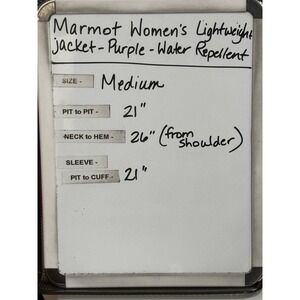 Marmot Women's Lightweight
jacket - Purple - Water Repellent
SIZE - Medium
PIT to PIT - 21"
NECK to HEM - 26" (from
shoulder)
SLEEVE -
PIT to CUFF - 21"